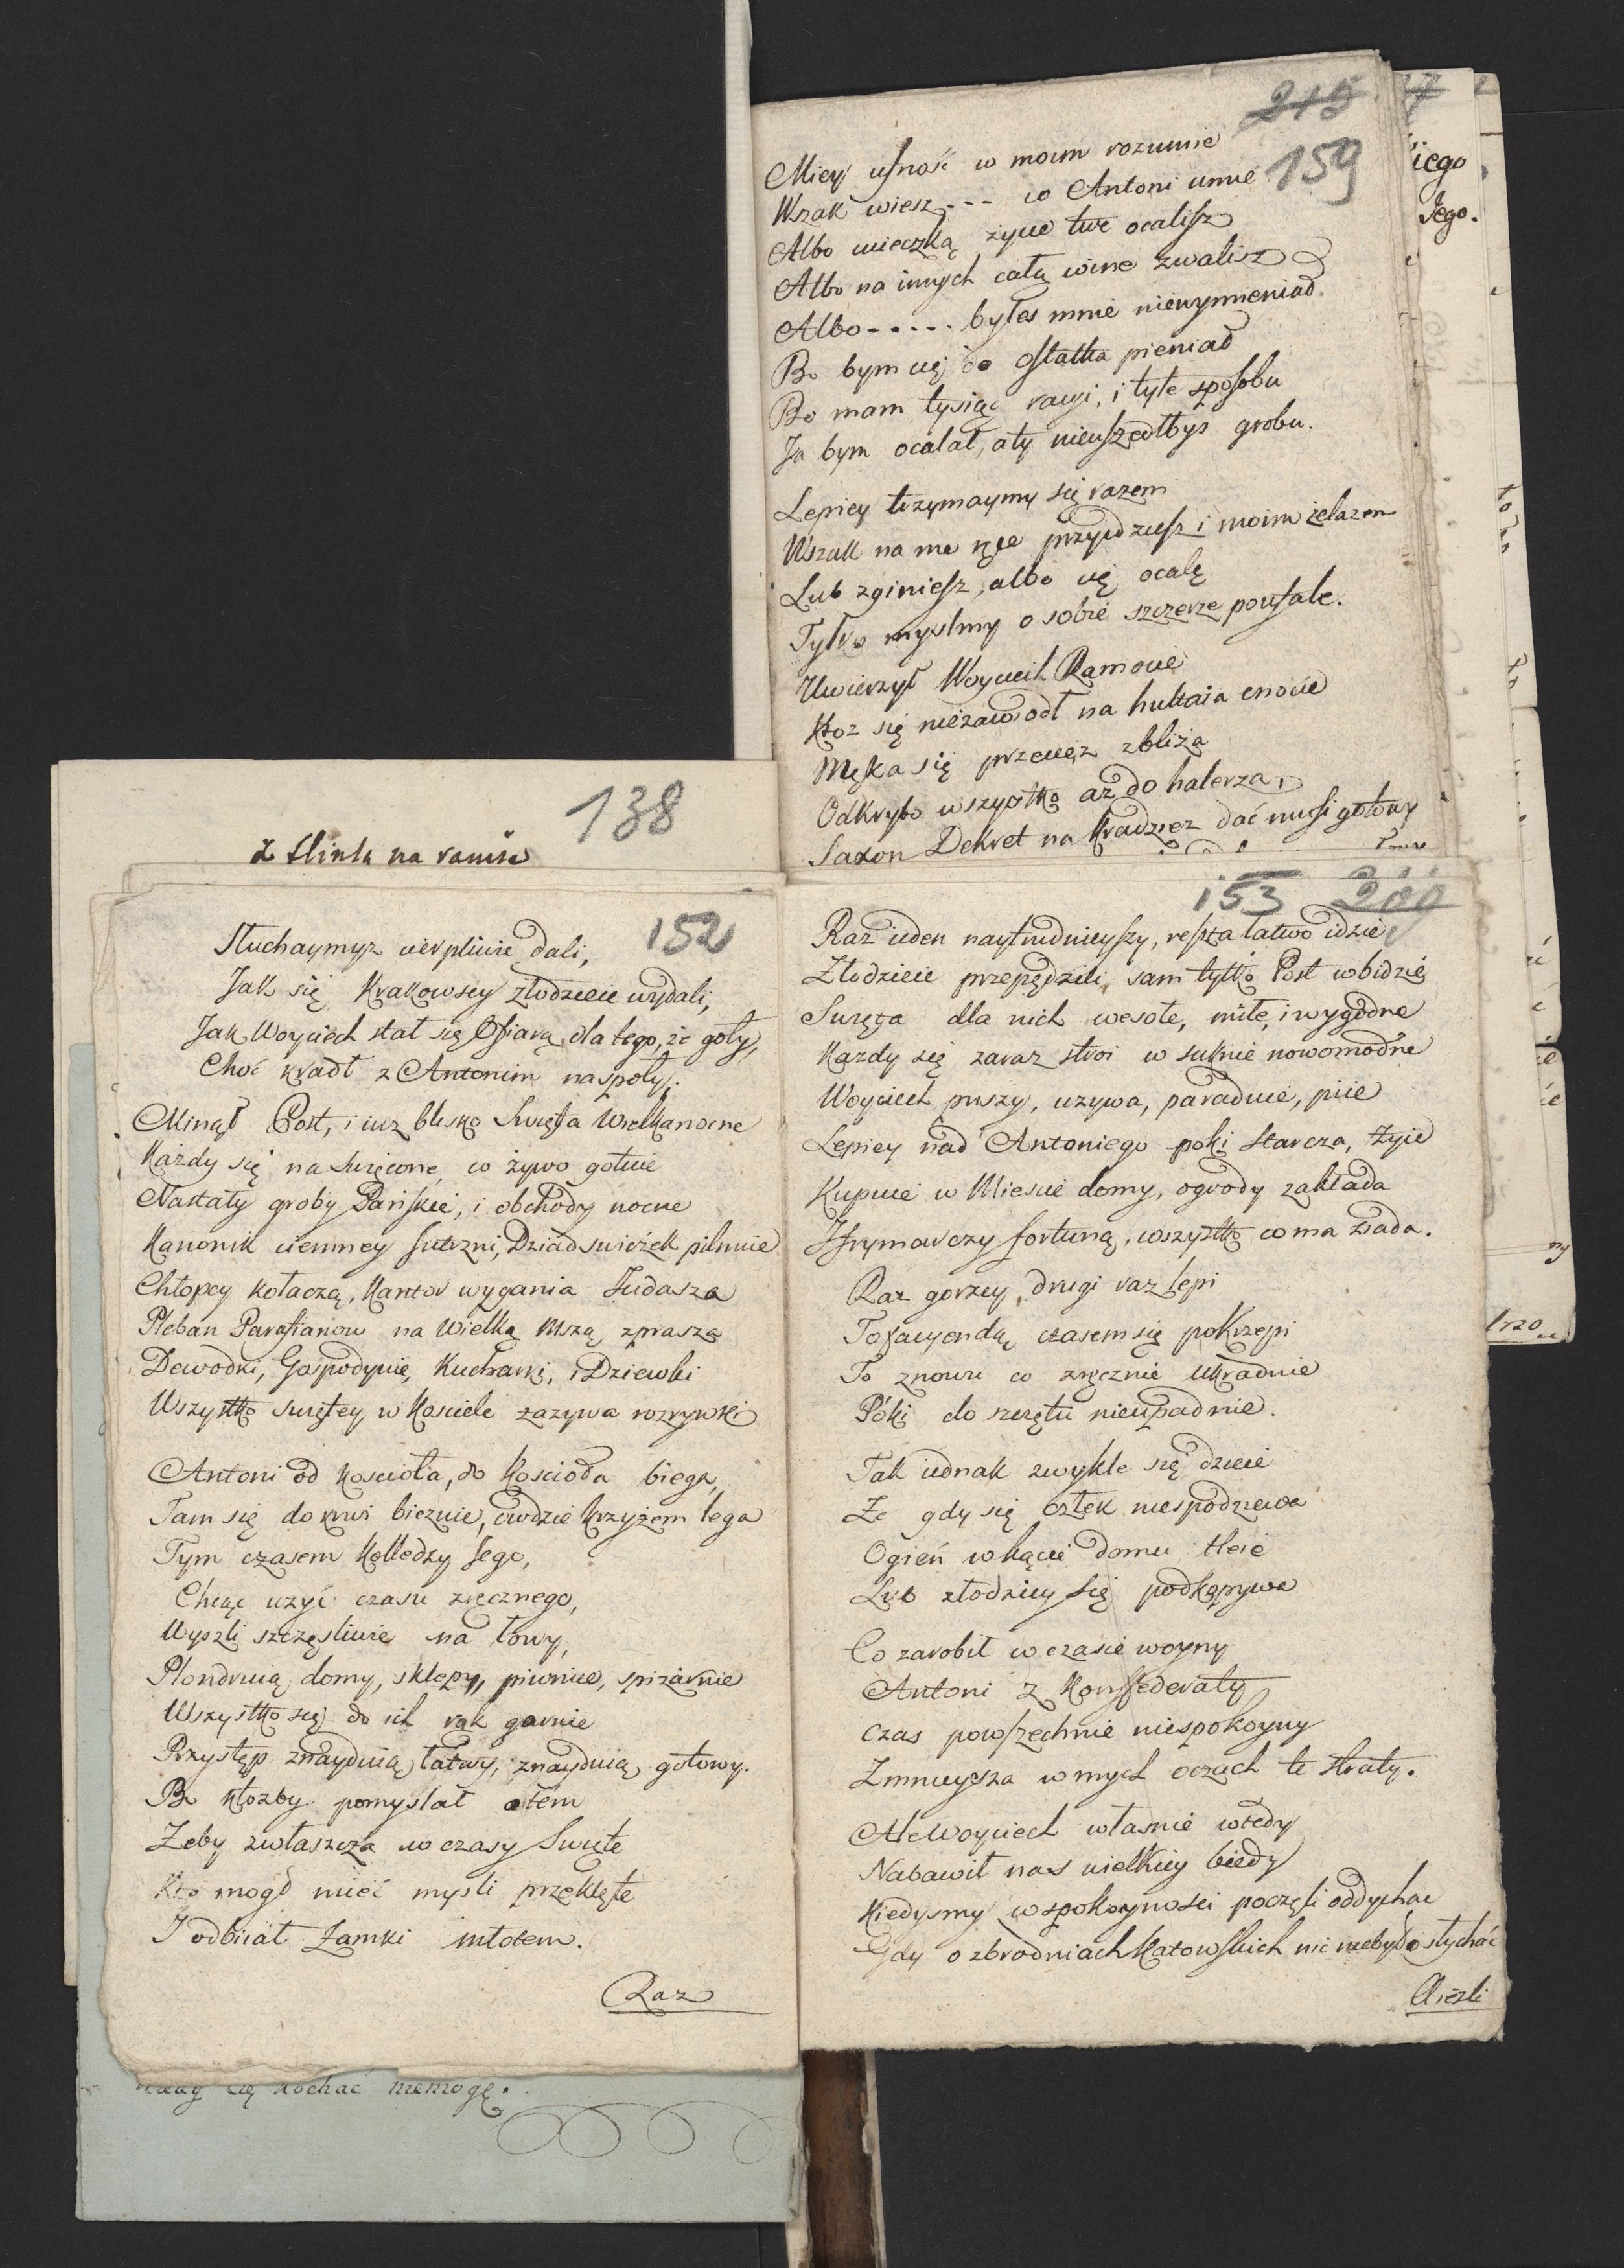 215
159
Miey ufność w moim rozumie
Wszak wiesz --- co Antoni umie
Albo ucieczką życie twe ocalisz
Albo na innych całą wine zwalisz
Albo ..... byłes mnie niewymieniał.
Bo bym cię do ostatka pieniał
Bo mam tysiąc racyi, i tyle sposobu
Ja bym ocalał, a ty nieuszedłbys grobu.
Lepiey trzymaymy się razem
Wszak na me ręce przyidziesz i moim żelazem
Lub zginiesz, albo cię ocalę
Tylko myslmy o sobie szczerze poufale.
Uwierzył Woyciech Ramocie
Ktoz się niezawiodł na hultaia cnocie
Męka się przecięż zbliża
Odkryto wszystko aż do halerza,
Saxon Dekret na Kradzież dać musi gotowy
iego
Jego.
138
z flinta na ramie
152
Słuchaymyż cierpliwie dali,
Jak się Krakowscy złodzieie wydali,
Jak Woyciech stał się Ofiarą, dla tego, że goły,
Choć kradł z Antonim na społy.
Minął Post, i iuz blisko Święta Wielkanocne
Każdy się na Swięcone co żywo gotuie
Nastały groby Pańskie, i obchody nocne
Kanonik ciemney Jutrzni, Dziad swieżek pilnuie
Chłopcy kołaczą, Kantor wygania Judasza
Pleban Parafianow na Wielką Mszą zprasza
Dewodki, Gospodynie, Kucharki, i Dziewki
Wszystko swiętey w Kosciele zazywa rozrywki
Antoni od kosciola, do Koscioła biega,
Tam się do krwi biczuie, owdzie krzyżem lega
Tym czasem Kolledzy Jego,
Chcąc uzyć czasu zręcznego,
Wyszli szczęsliwie na łowy,
Plondruią domy, sklepy, piwnice, spiżarnie
Wszystko się do ich rąk garnie
Przystęp znayduią łatwy, znayduią gotowy.
Bo ktożby pomyslał otem
Zeby zwłaszcza w czasy Swięte
Kto mogł mieć mysli przeklęte
I odbiiał Zamki młotem.
Raz
153
200
Raz ieden naytrudnieyszy, reszta łatwo idzie
Złodzieie przepędzili sam tylko Post w bidzie
Swięta dla nich wesołe, miłe, i wygodne
Kazdy się zaraz stroi w suknie nowomodne
Woyciech puszy, uzywa, paraduie, piie
Lepiey nad Antoniego poki starcza, żyie
Kupuie w Miescie domy, ogrody zakłada
Zfrymarczy fortuną, wszystko co ma ziada.
Raz gorzey, drugi raz lepi
To facyendą czasem się pokrzepi
To znowu co zręcznie ukradnie
Póki do szczętu nieupadnie.
Tak iednak zwykle się dzieie
Ze gdy się człek niespodziewa
Ogień w kącie domu tleie
Lub złodziey się podkopywa
Co zarobił w czasie woyny
Antoni z Konfederaty
Czas powszechnie niespokoyny
Zmnieysza w mych oczach te straty.
Ale Woyciech własnie wtedy
Nabawił nas wielkiey biedy
Kiedysmy w spokoynosci poczęli oddychac
Gdy o zbrodniach Katowskich nic niebyło słychać
cię kochać niemogę.